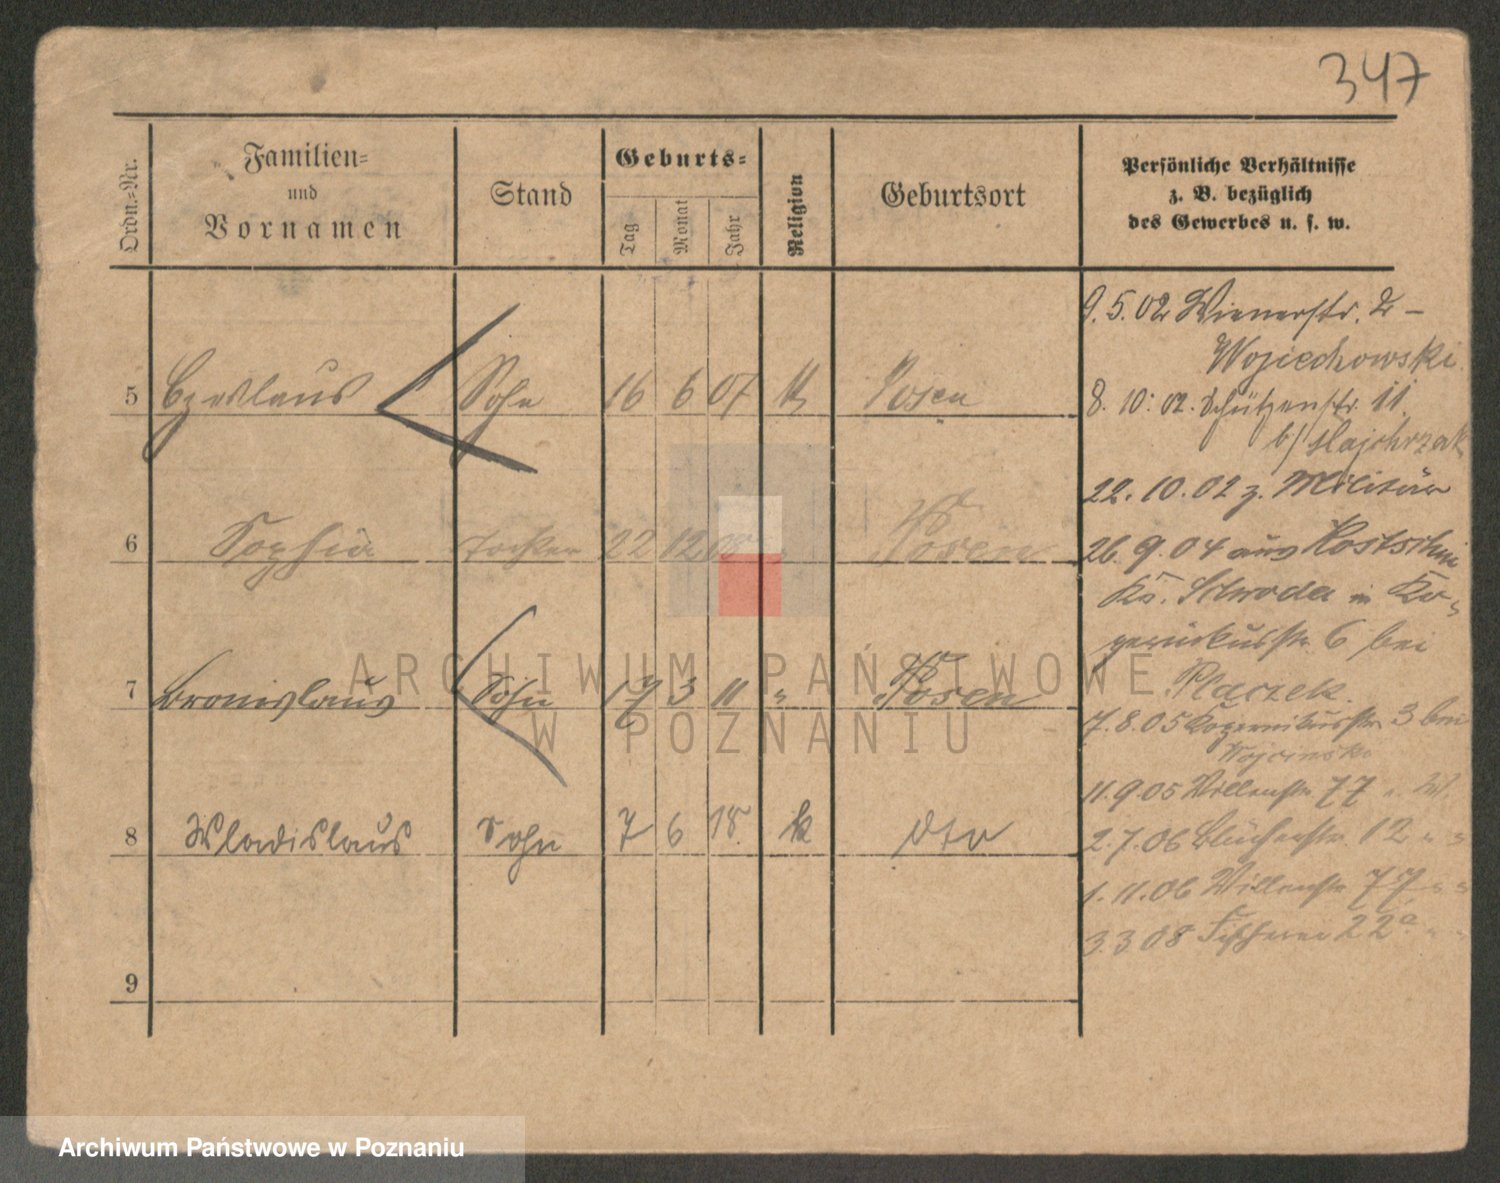 347
Ordn.-Nr.
Familien-
und
Vornamen
Stand
Geburts-
Tag
Monat
Jahr
Religion
Geburtsort
Persönliche Verhältnisse
z. B. bezüglich
des Gewerbes u. s. w.
5 Czeslaus Sohn 16 6 07 K Posen
6 Sophia Tochter 22 12 08 " Posen
7 Bronislaus Sohn 17 3 11 " Posen
8 Wladislaus Sohn 7 6 18 k dto
9
9.5.02 Wienerstr. 2 -
Wojiechowski.
8.10.02. Schützenstr. 11.
b/ Majchrzak
22.10.02 z. Militär
26.9.04 aus Kostschin
Kr. Schroda in Ko-
pernikusstr. 6 bei
Placzek.
7.8.05 Kopernikusstr. 3 bei
11.9.05 Villenstr. 77 " W.
2.7.06 Blücherstr. 12 " "
1.11.06 Villenstr. 77 " "
3.3.08 Fischerei 22a " "
ARCHIWUM PAŃSTWOWE
W POZNANIU
Archiwum Państwowe w Poznaniu